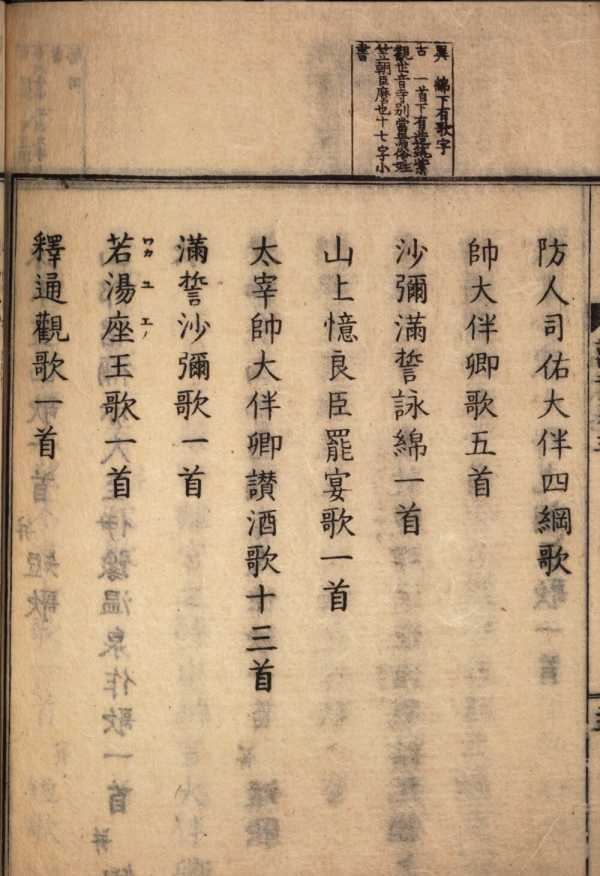 異 綿下有歌字
古 一首下有造筑紫
觀世音寺別當俗姓
笠朝臣麿也十七字小
書
防人司佑大伴四綱歌
帥大伴卿歌五首
沙彌滿誓詠綿一首
山上憶良臣罷宴歌一首
太宰帥大伴卿讃酒歌十三首
滿誓沙彌歌一首
若湯座王歌一首
ワカ ユ ヱノ
釋通觀歌一首